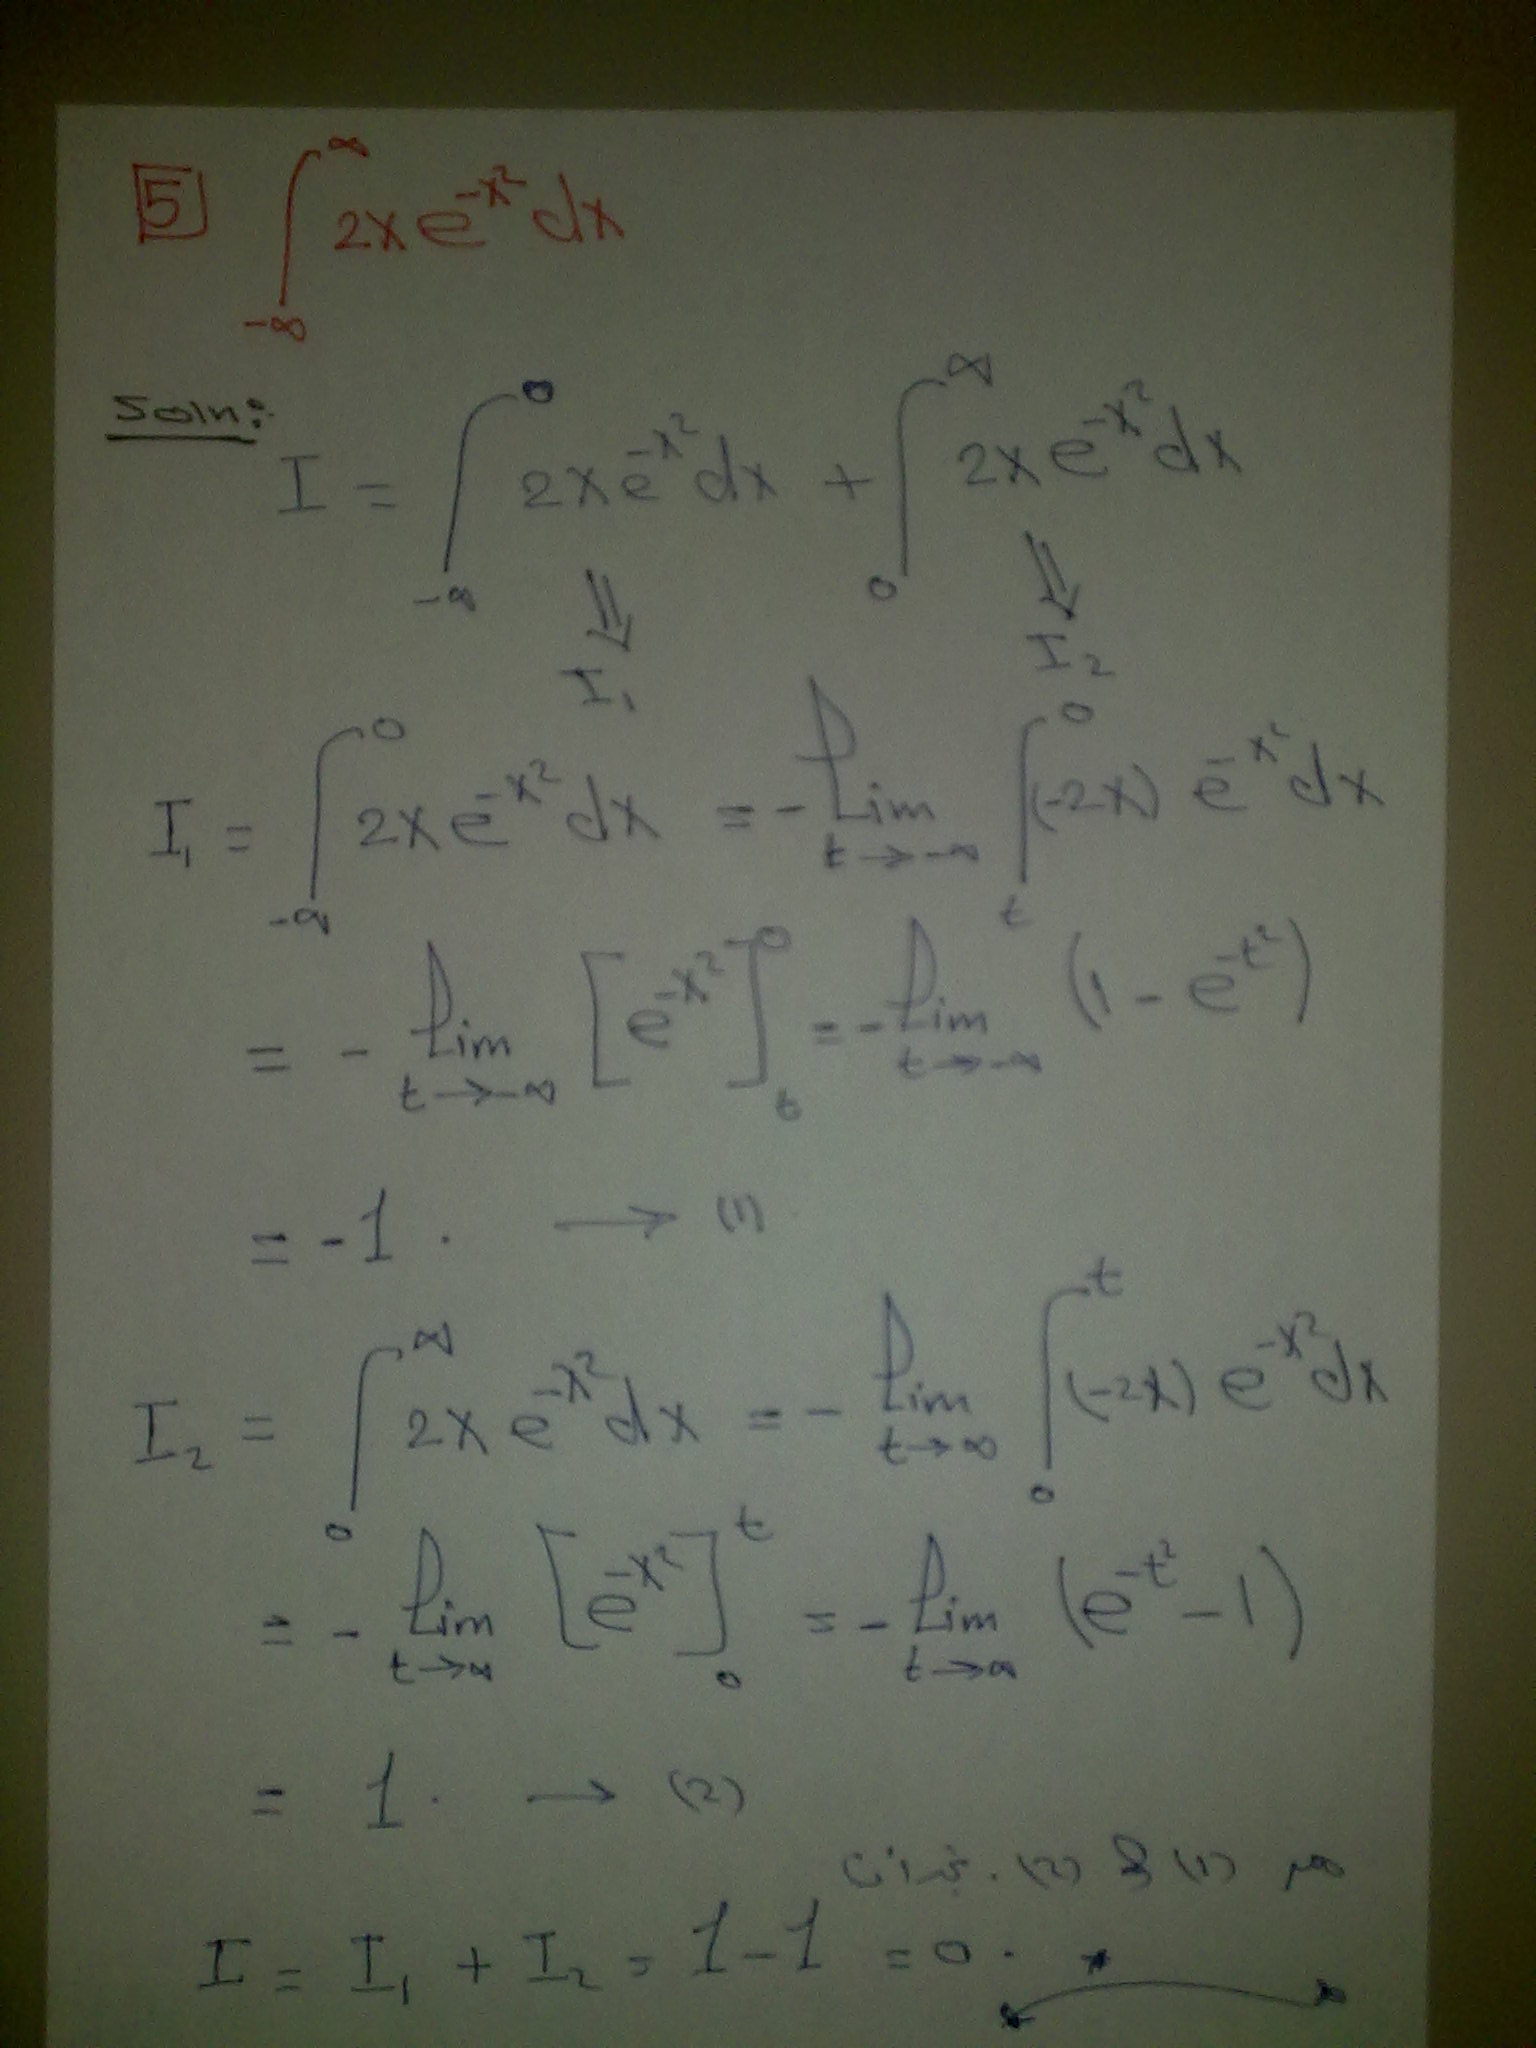 5 ∫_{-∞}^{∞} 2x e^{-x²} dx
Soln:
I = ∫_{-∞}^{0} 2x e^{-x²} dx + ∫_{0}^{∞} 2x e^{-x²} dx
⇓ ⇓
I₁ I₂
I₁ = ∫_{-∞}^{0} 2x e^{-x²} dx = - lim_{t→-∞} ∫_{t}^{0} (-2x) e^{-x²} dx
= - lim_{t→-∞} [e^{-x²}]_{t}^{0} = - lim_{t→-∞} (1 - e^{-t²})
= -1. → (1)
I₂ = ∫_{0}^{∞} 2x e^{-x²} dx = - lim_{t→∞} ∫_{0}^{t} (-2x) e^{-x²} dx
= - lim_{t→∞} [e^{-x²}]_{0}^{t} = - lim_{t→∞} (e^{-t²} - 1)
= 1. → (2)
من (1) & (2)
I = I₁ + I₂ = 1 - 1 = 0.